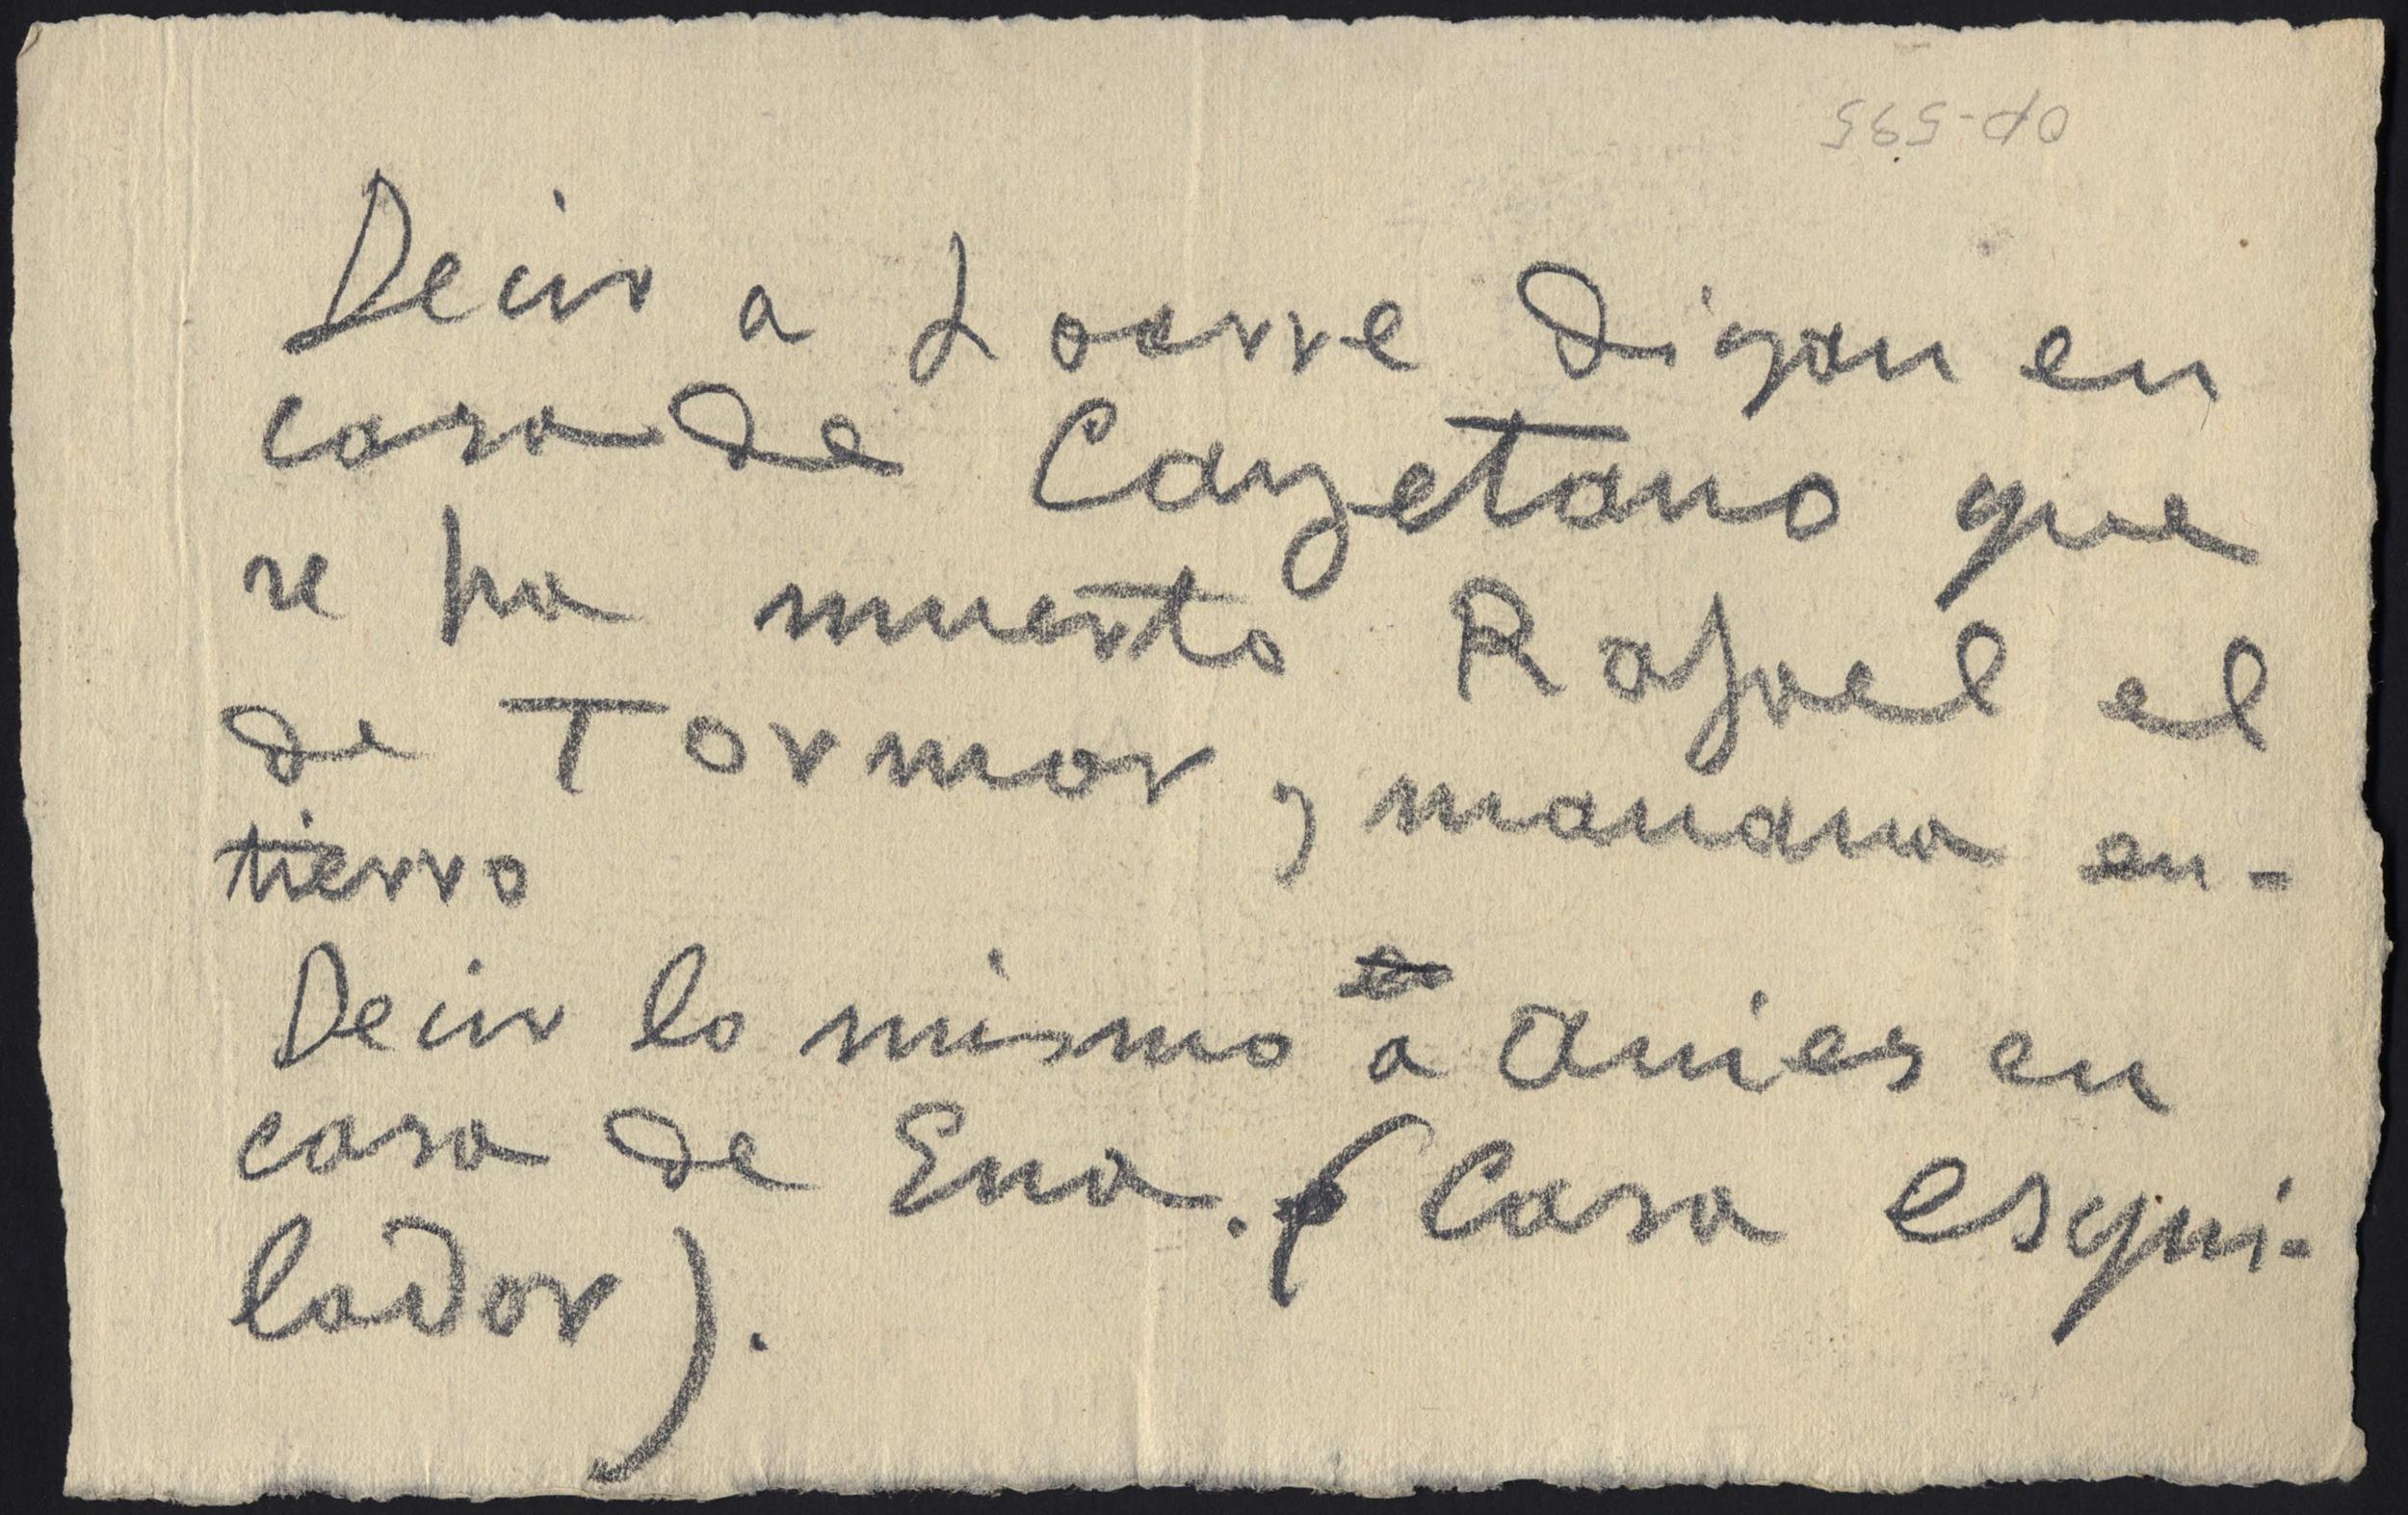 OP-595
Decir a Loarre digan en
casa de Cayetano que
se ha muerto Rafael el
de Tormos y manana en-
tierro
Decir lo mismo a Anies en
casa de Ena. (Casa esqui-
lador).